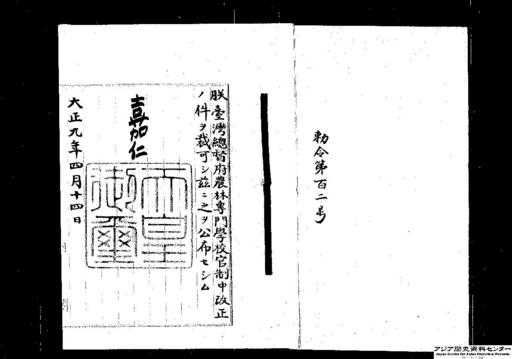 勅令第百二号
朕臺灣總督府農林專門學校官制中改正
ノ件ヲ裁可シ茲ニ之ヲ公布セシム
嘉仁
天皇御璽
大正九年四月十四日
アジア歴史資料センター
Japan Center for Asian Historical Records